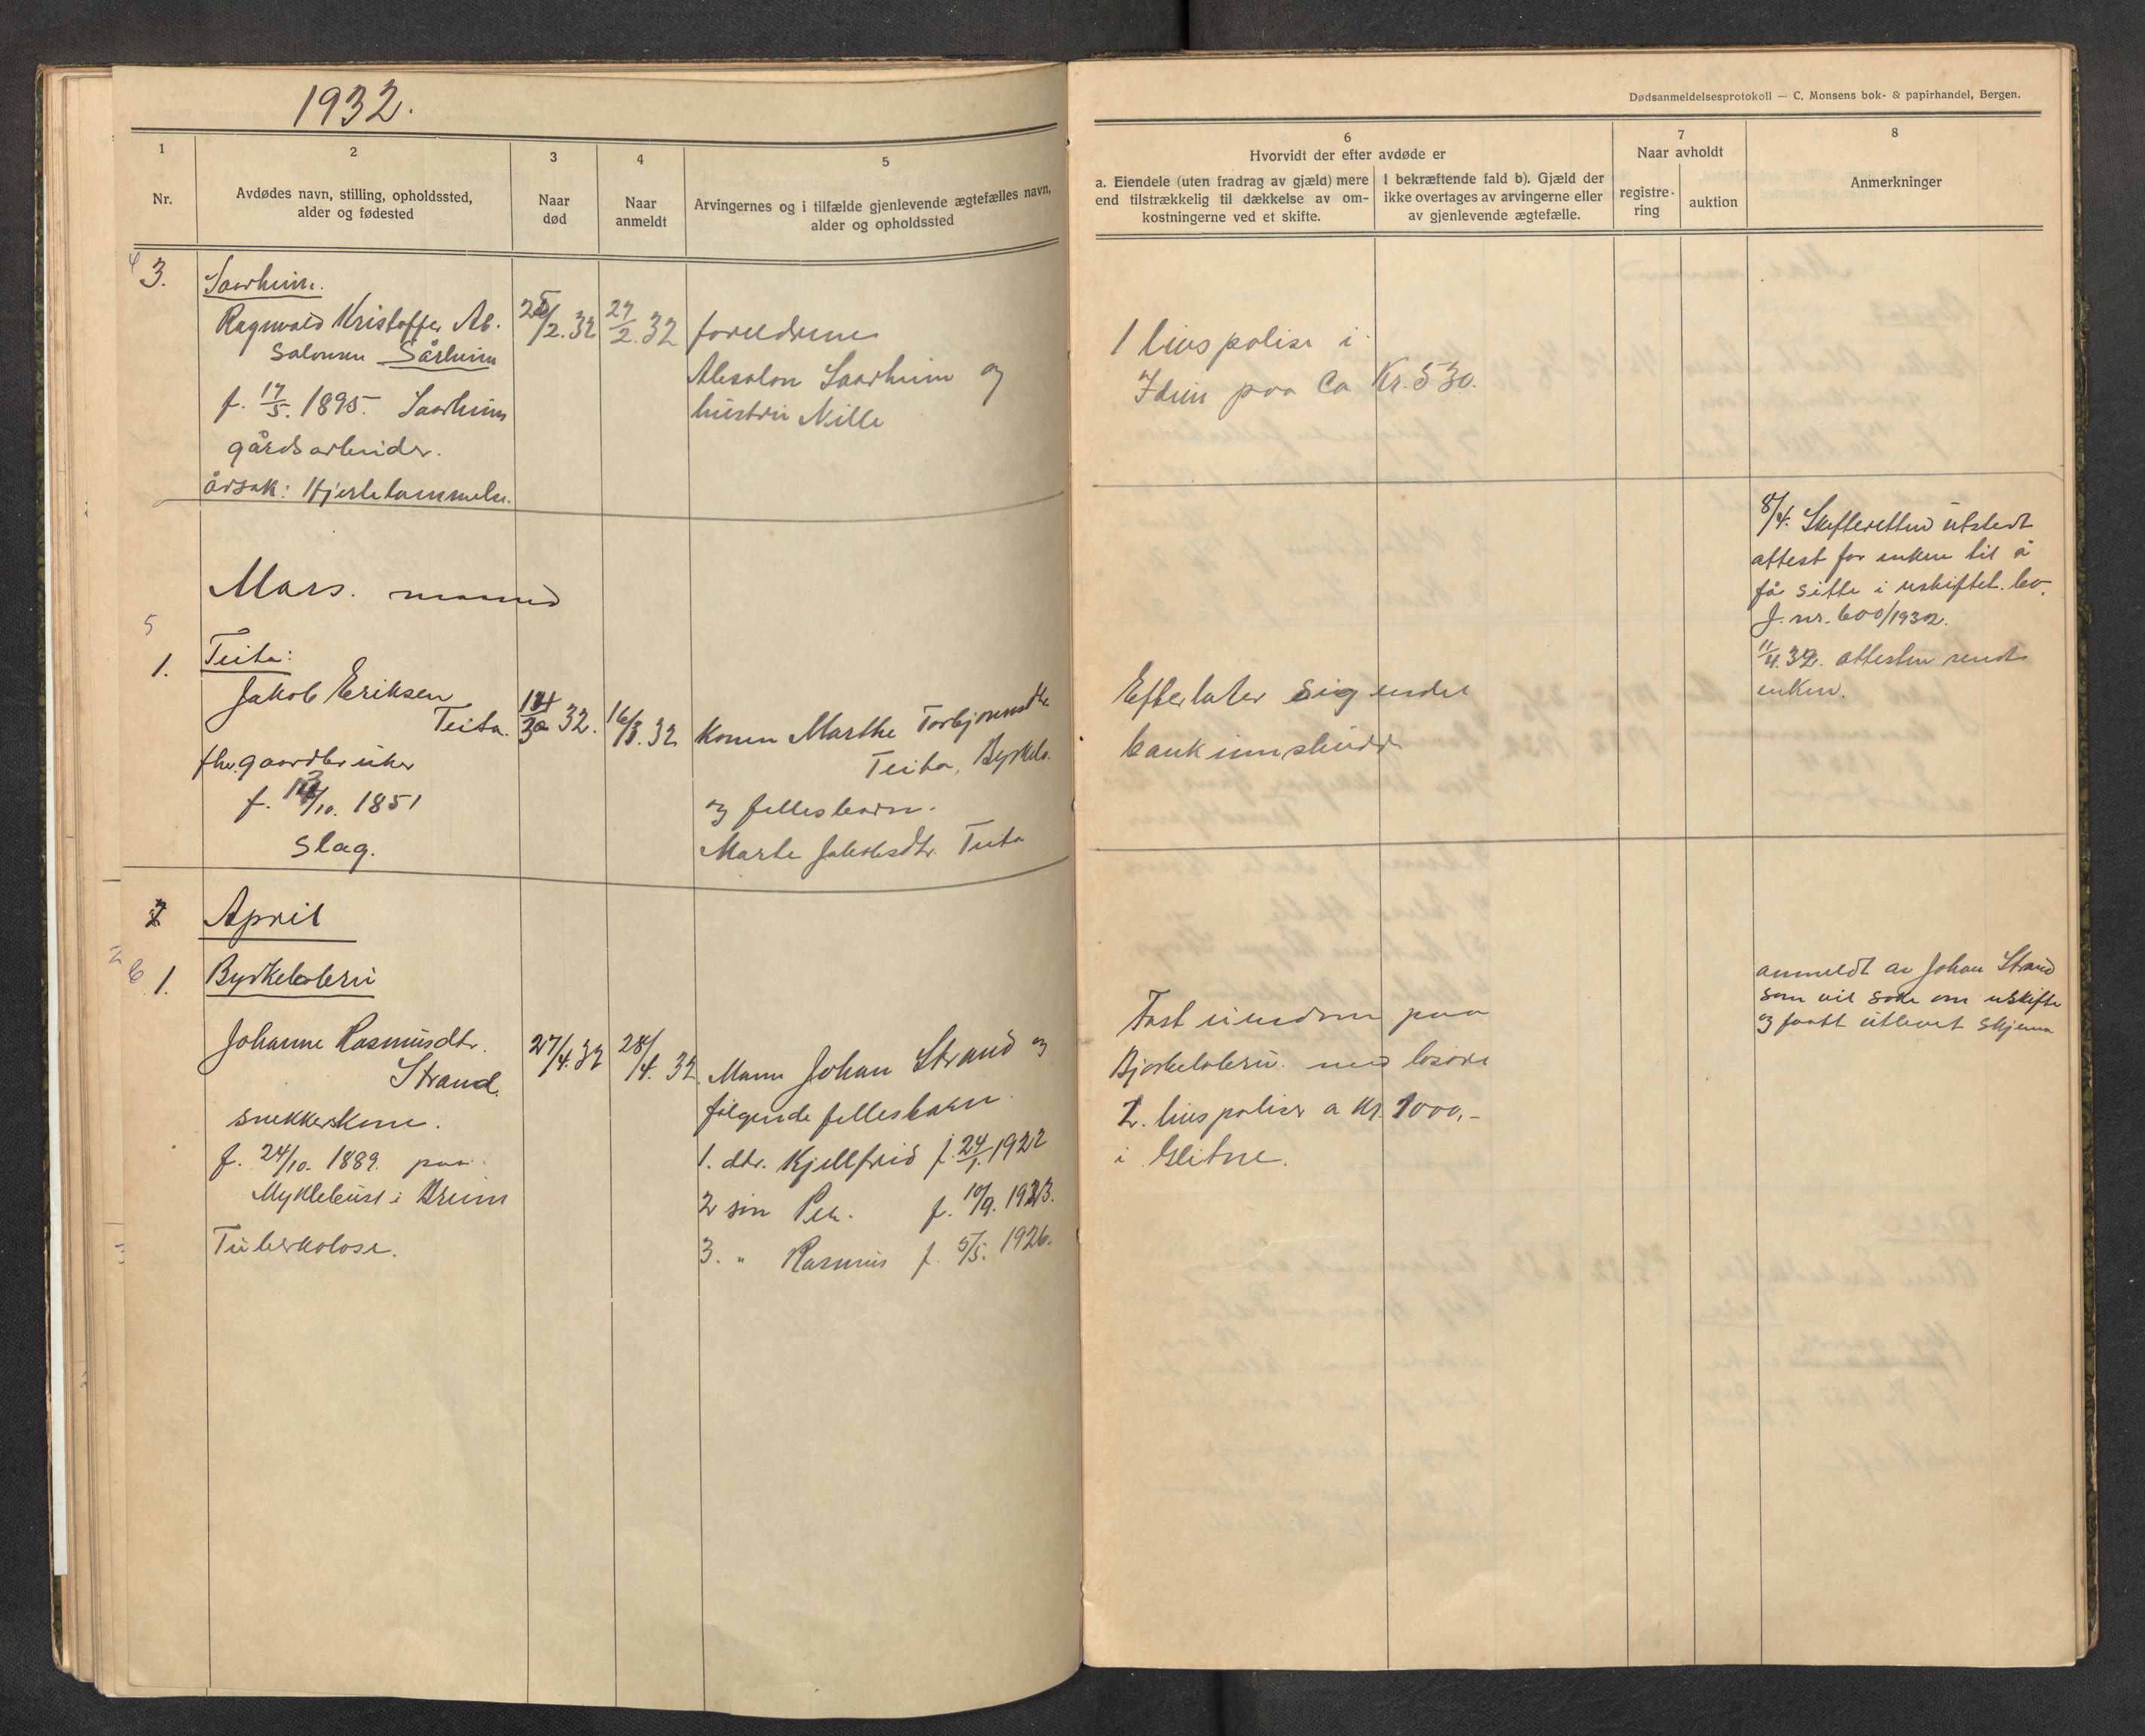 1932.
1
2
3
4
5
Nr.
Avdødes navn, stilling, opholdssted,
alder og fødested
Naar
død
Naar
anmeldt
Arvingernes og i tilfælde gjenlevende ægtefælles navn,
alder og opholdssted
4 3.
Saarheim.
Ragnvald Kristoffer Ab-
salonsen Sårheim
f. 17/5. 1895. Saarheim
gårdsarbeider.
årsak: Hjertelammelse.
/2.32
27/2.32
foreldrene
Absalon Saarheim og
hustru Nille
Mars. maaned
5
1.
Teita:
Jakob Eriksen
Teita.
fhv. gaardbruker
/10. 1851
Slag.
32.
16/3.32
Konen Marthe Torbjørnsdtr.
Teita, Byrkelo.
og fellesbarn.
Marte Jakobsdtr. Teita
April
6 1.
Byrkeloleru
Johanne Rasmusdtr.
Strand.
snekkerkone.
f. 24/10. 1889. paa
Myklebust i Breim
Tuberkolose.
27/4.32
28/4.32
Mann Johan Strand og
følgende fellesbarn.
1. dtr. Kjellfrid f. 24/1. 1922
2 søn Per. f. 10/9. 1923.
3. " Rasmus f. 5/5. 1926.
Dødsanmeldelsesprotokoll — C. Monsens bok- & papirhandel, Bergen.
6
Hvorvidt der efter avdøde er
a. Eiendele (uten fradrag av gjæld) mere
end tilstrækkelig til dækkelse av om-
kostningerne ved et skifte.
I bekræftende fald b). Gjæld der
ikke overtages av arvingerne eller
av gjenlevende ægtefælle.
7
Naar avholdt
registre-
ring
auktion
8
Anmerkninger
1 livspolise i
Idun paa ca Kr. 530.
8/4. Skifteretten utstedt
attest for enken til å
få sitte i uskiftet bo.
J. nr. 600/1932.
11/4.32. attesten sendt
enken.
Efterlater sig endel
bankinnskudd
anmeldt av Johan Strand
som vil søke om uskifte
og faatt utlevert skjema
Fast eiendom paa
Bjørkeloleru. med løsøre
2. livspoliser a Kr. 1000,-
i Glitne.